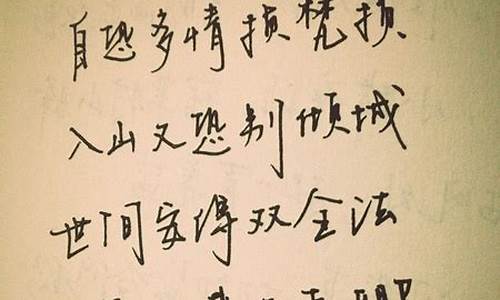 自恐多情损梵损
入山又恐别倾城
世间安得双全法